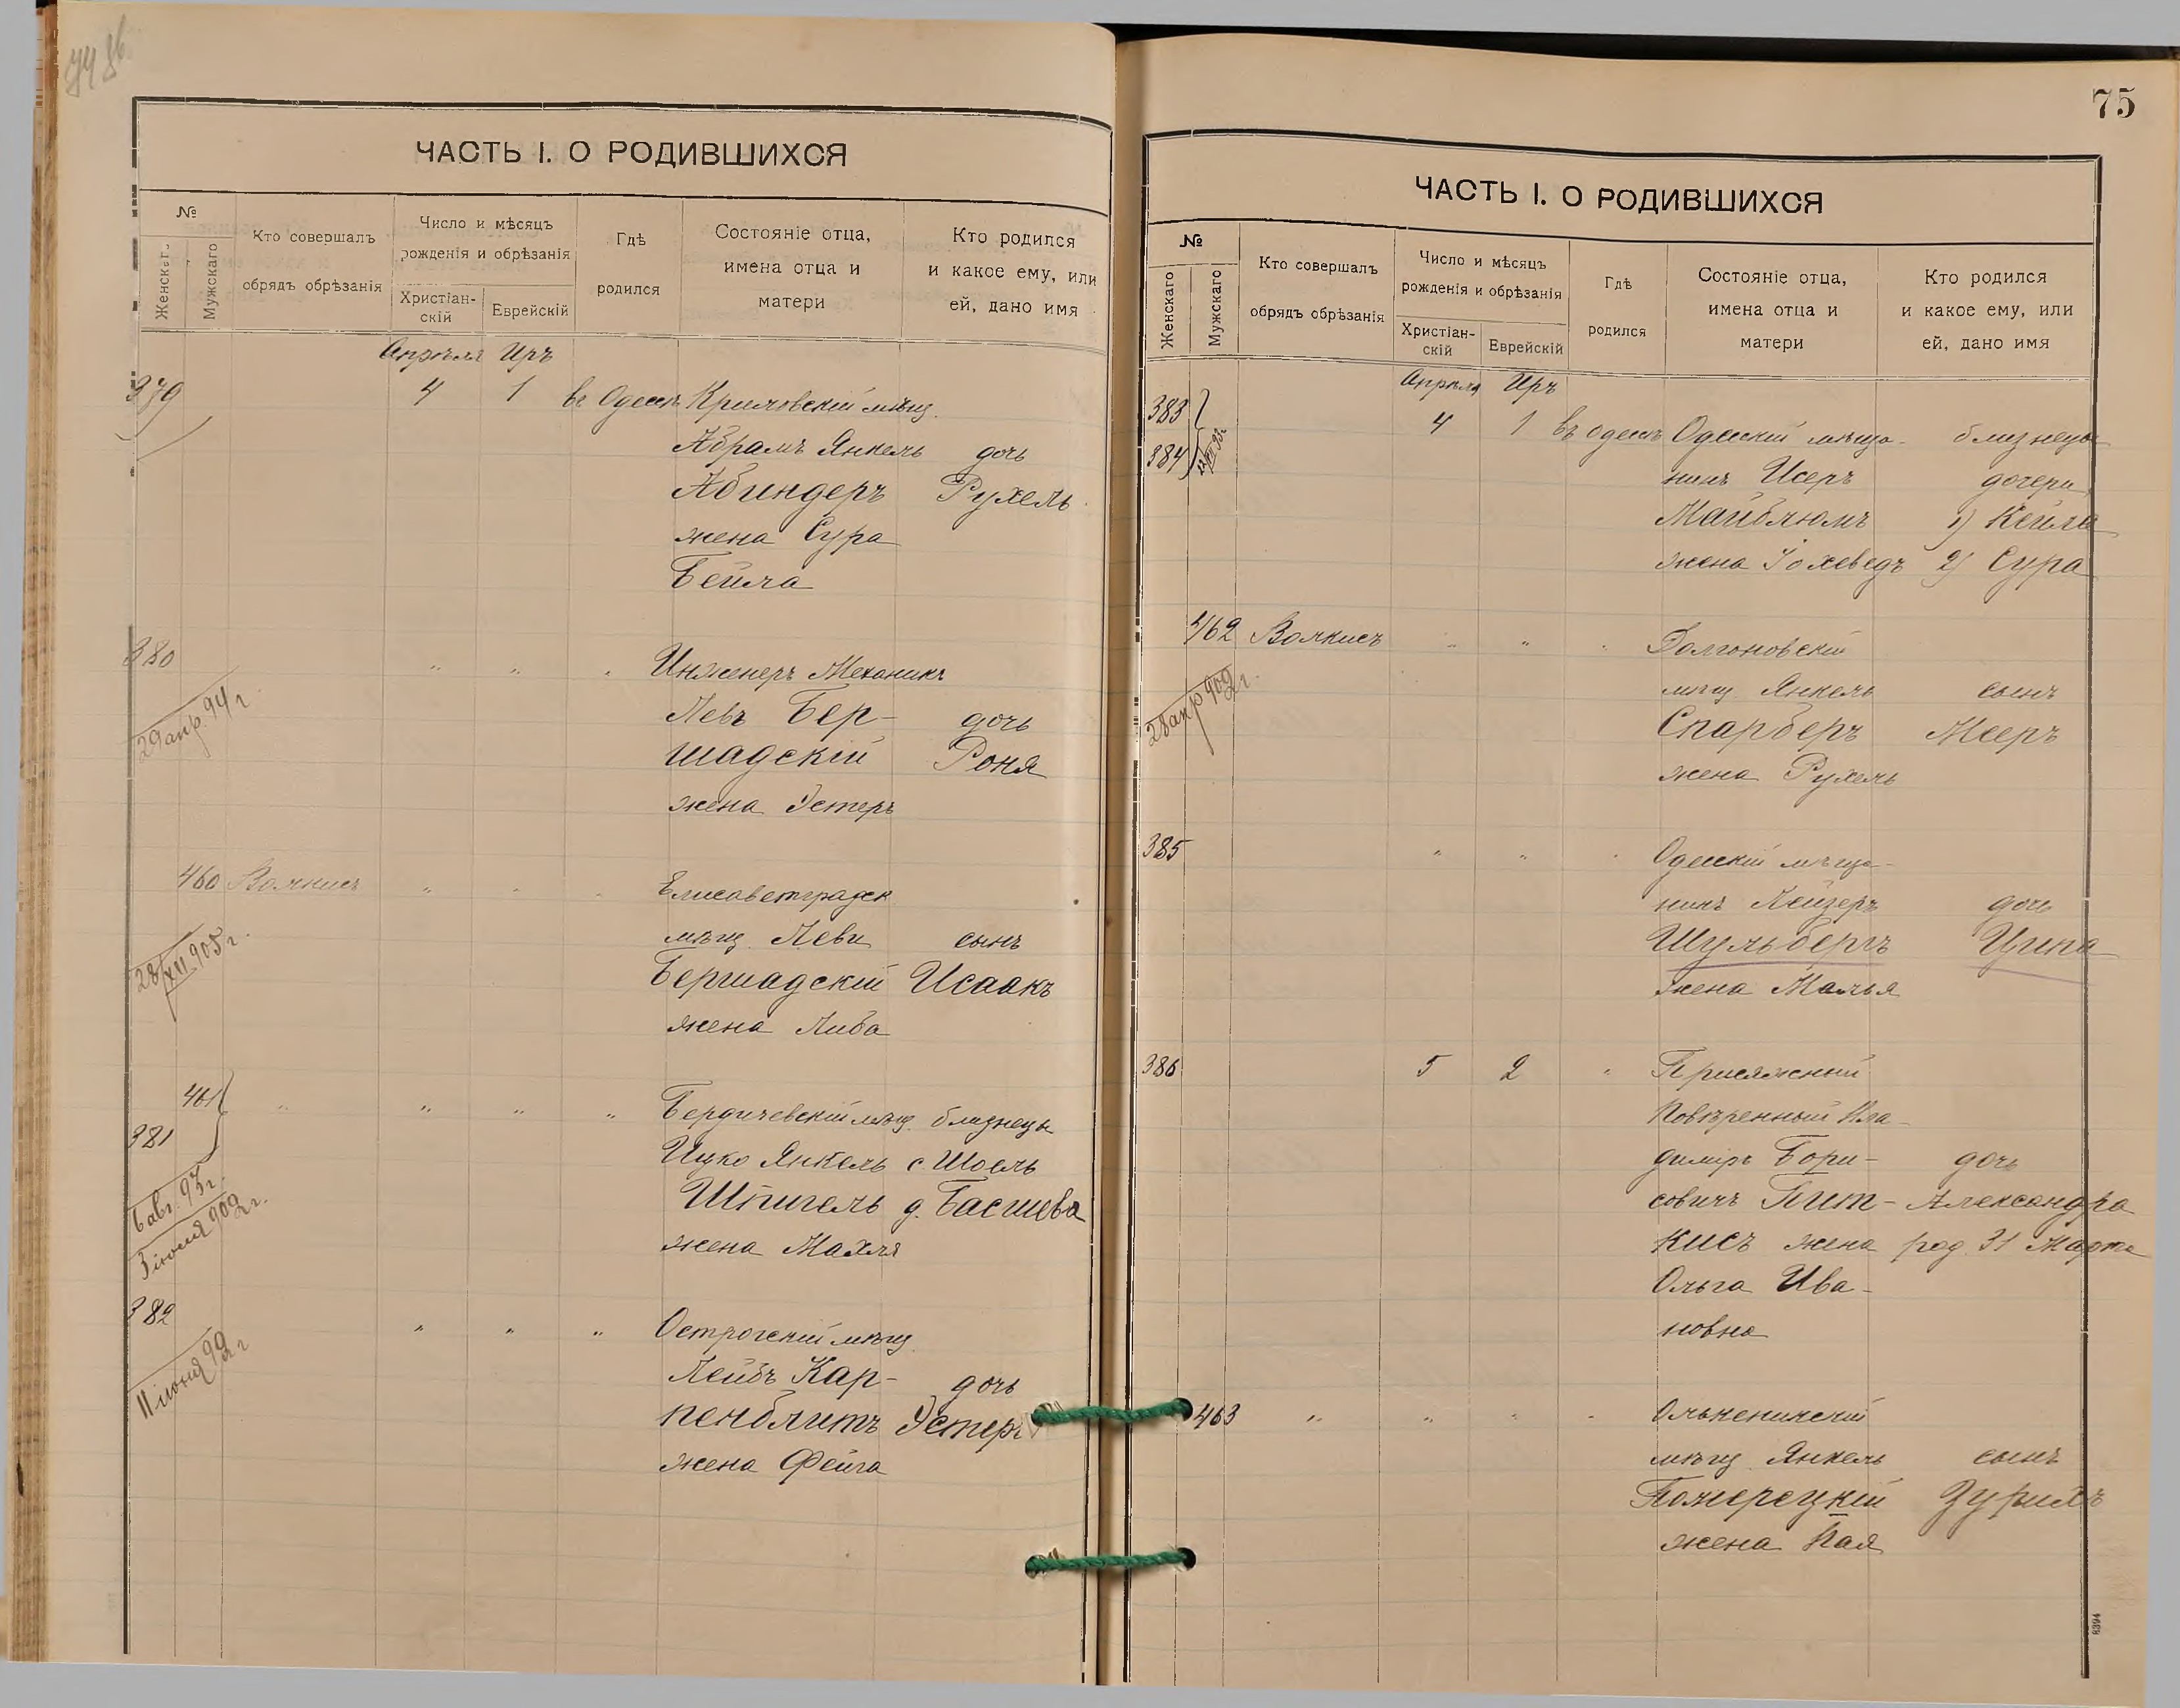 ЧАСТЬ I. О РОДИВШИХСЯ
№
Женскаго
Мужскаго
Кто совершалъ
обрядъ обрѣзанія
Число и мѣсяцъ
рожденія и обрѣзанія
Христіан-
скій
Еврейскій
Гдѣ
родился
Состояніе отца,
имена отца и
матери
Кто родился
и какое ему, или
ей, дано имя
Апрѣля Иръ
379 4 1 въ Одессѣ Крыловскій мѣщ.
Абрамъ Янкель дочь
Абиндеръ Рухель
жена Сура
Бейла
380 " " " Инженеръ Механикъ
29 апр. 94 г.
Левъ Бер- дочь
шадскій Роня
жена Эстеръ
460 Волкисъ " " " Елисаветградск
28/XII 905 г.
мѣщ. Леви сынъ
Бершадскій Исаакъ
жена Либа
461 " " " " Бердичевскій мѣщ. близнецы
381
Ицко Янкель с. Шоель
6 авг. 93 г.
Шпигель д. Басшева
3 іюля 909 г.
жена Махля
382 " " " Острогскій мѣщ.
11 іюня 99 г.
Лейбъ Кар- дочь
пенблитъ Эстеръ
жена Фейга
75
ЧАСТЬ I. О РОДИВШИХСЯ
№
Женскаго
Мужскаго
Кто совершалъ
обрядъ обрѣзанія
Число и мѣсяцъ
рожденія и обрѣзанія
Христіан-
скій
Еврейскій
Гдѣ
родился
Состояніе отца,
имена отца и
матери
Кто родился
и какое ему, или
ей, дано имя
Апрѣля Иръ
383
384
4 1 въ Одессѣ Одесскій мѣща- близнецы
нинъ Исеръ дочери
Майблюмъ 1) Кейла
жена Іохеведъ 2) Сура
462 Волкисъ " " " Долгоновскій
28 апр 909 г.
мѣщ Янкель сынъ
Спарберъ Мееръ
жена Рухель
385 " " " Одесскій мѣща-
нинъ Лейзеръ дочь
Шульбергъ Ципа
жена Малья
386 5 2 " Присяжный
Повѣренный Вла-
диміръ Бори- дочь
совичъ Пит- Александра
кисъ жена род. 31 Марта
Ольга Ива-
новна
463 " " " " Олькеникскій
мѣщ Янкель сынъ
Померецкій Зурилъ
жена Пая
8394